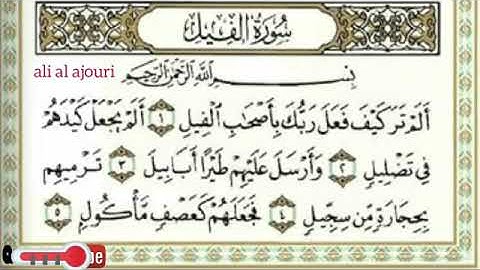 سُورَةُ الفِيلِ
ali al ajouri
بِسْمِ اللَّهِ الرَّحْمَٰنِ الرَّحِيمِ
أَلَمْ تَرَ كَيْفَ فَعَلَ رَبُّكَ بِأَصْحَابِ الْفِيلِ ١ أَلَمْ يَجْعَلْ كَيْدَهُمْ
فِي تَضْلِيلٍ ٢ وَأَرْسَلَ عَلَيْهِمْ طَيْرًا أَبَابِيلَ ٣ تَرْمِيهِم
بِحِجَارَةٍ مِّن سِجِّيلٍ ٤ فَجَعَلَهُمْ كَعَصْفٍ مَّأْكُولٍ ٥